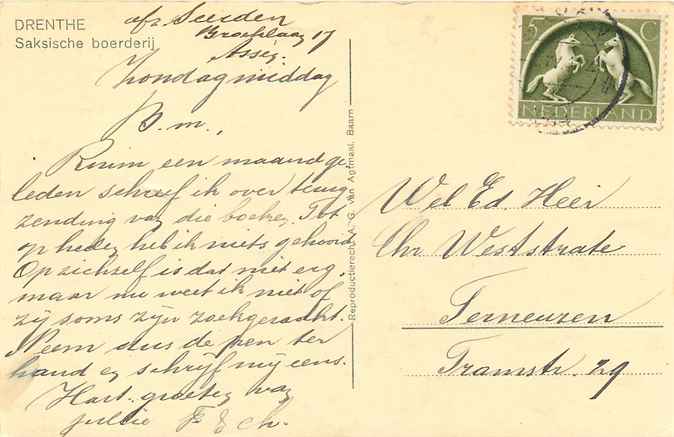 DRENTHE
Saksische boerderij
afz Seerden
17
Assen
Zondagmiddag
B.m.,
Ruim een maand ge-
leden schreef ik over terug-
zending van die boeken. Tot
op heden heb ik niets gehoord.
Op zichzelf is dat niet erg,
maar nu weet ik niet of
zij soms zijn zoekgeraakt.
Neem dus de pen ter
hand en schrijf mij eens.
Hart. groeten van
jullie F & Ch.
Reproductierecht A. G. van Agtmaal, Baarn
5 C
NEDERLAND
Wel Ed. Heer
Chr Weststrate
Terneuzen
Tramstr. 29